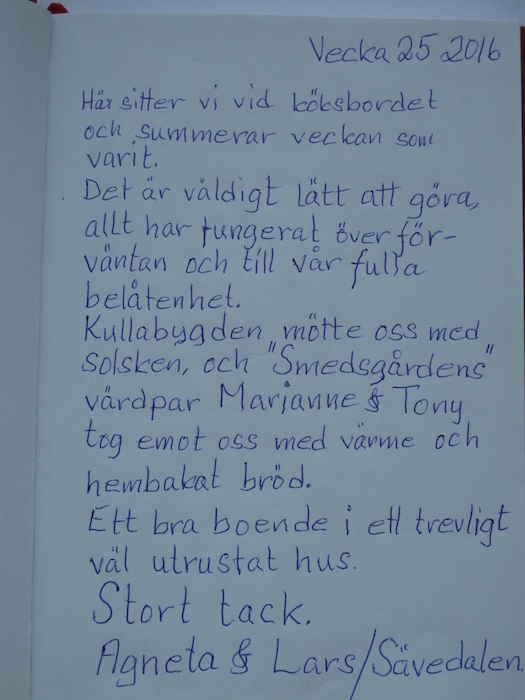 Vecka 25 2016
Här sitter vi vid köksbordet
och summerar veckan som
varit.
Det är väldigt lätt att göra,
allt har fungerat över för-
väntan och till vår fulla
belåtenhet.
Kullabygden mötte oss med
solsken, och "Smedsgårdens"
värdpar Marianne & Tony
tog emot oss med värme och
hembakat bröd.
Ett bra boende i ett trevligt
väl utrustat hus.
Stort tack.
Agneta & Lars/Sävedalen